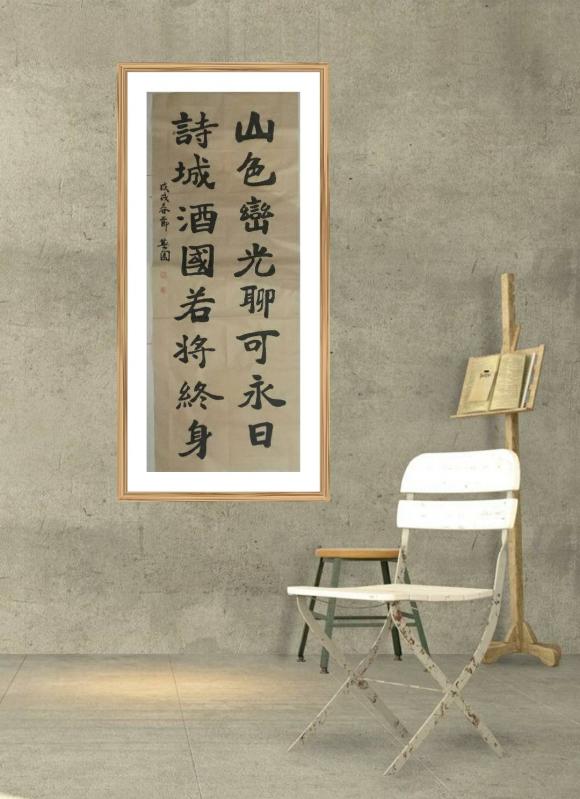 山色巒光聊可永日
詩城酒國若将終身
戊戌春節